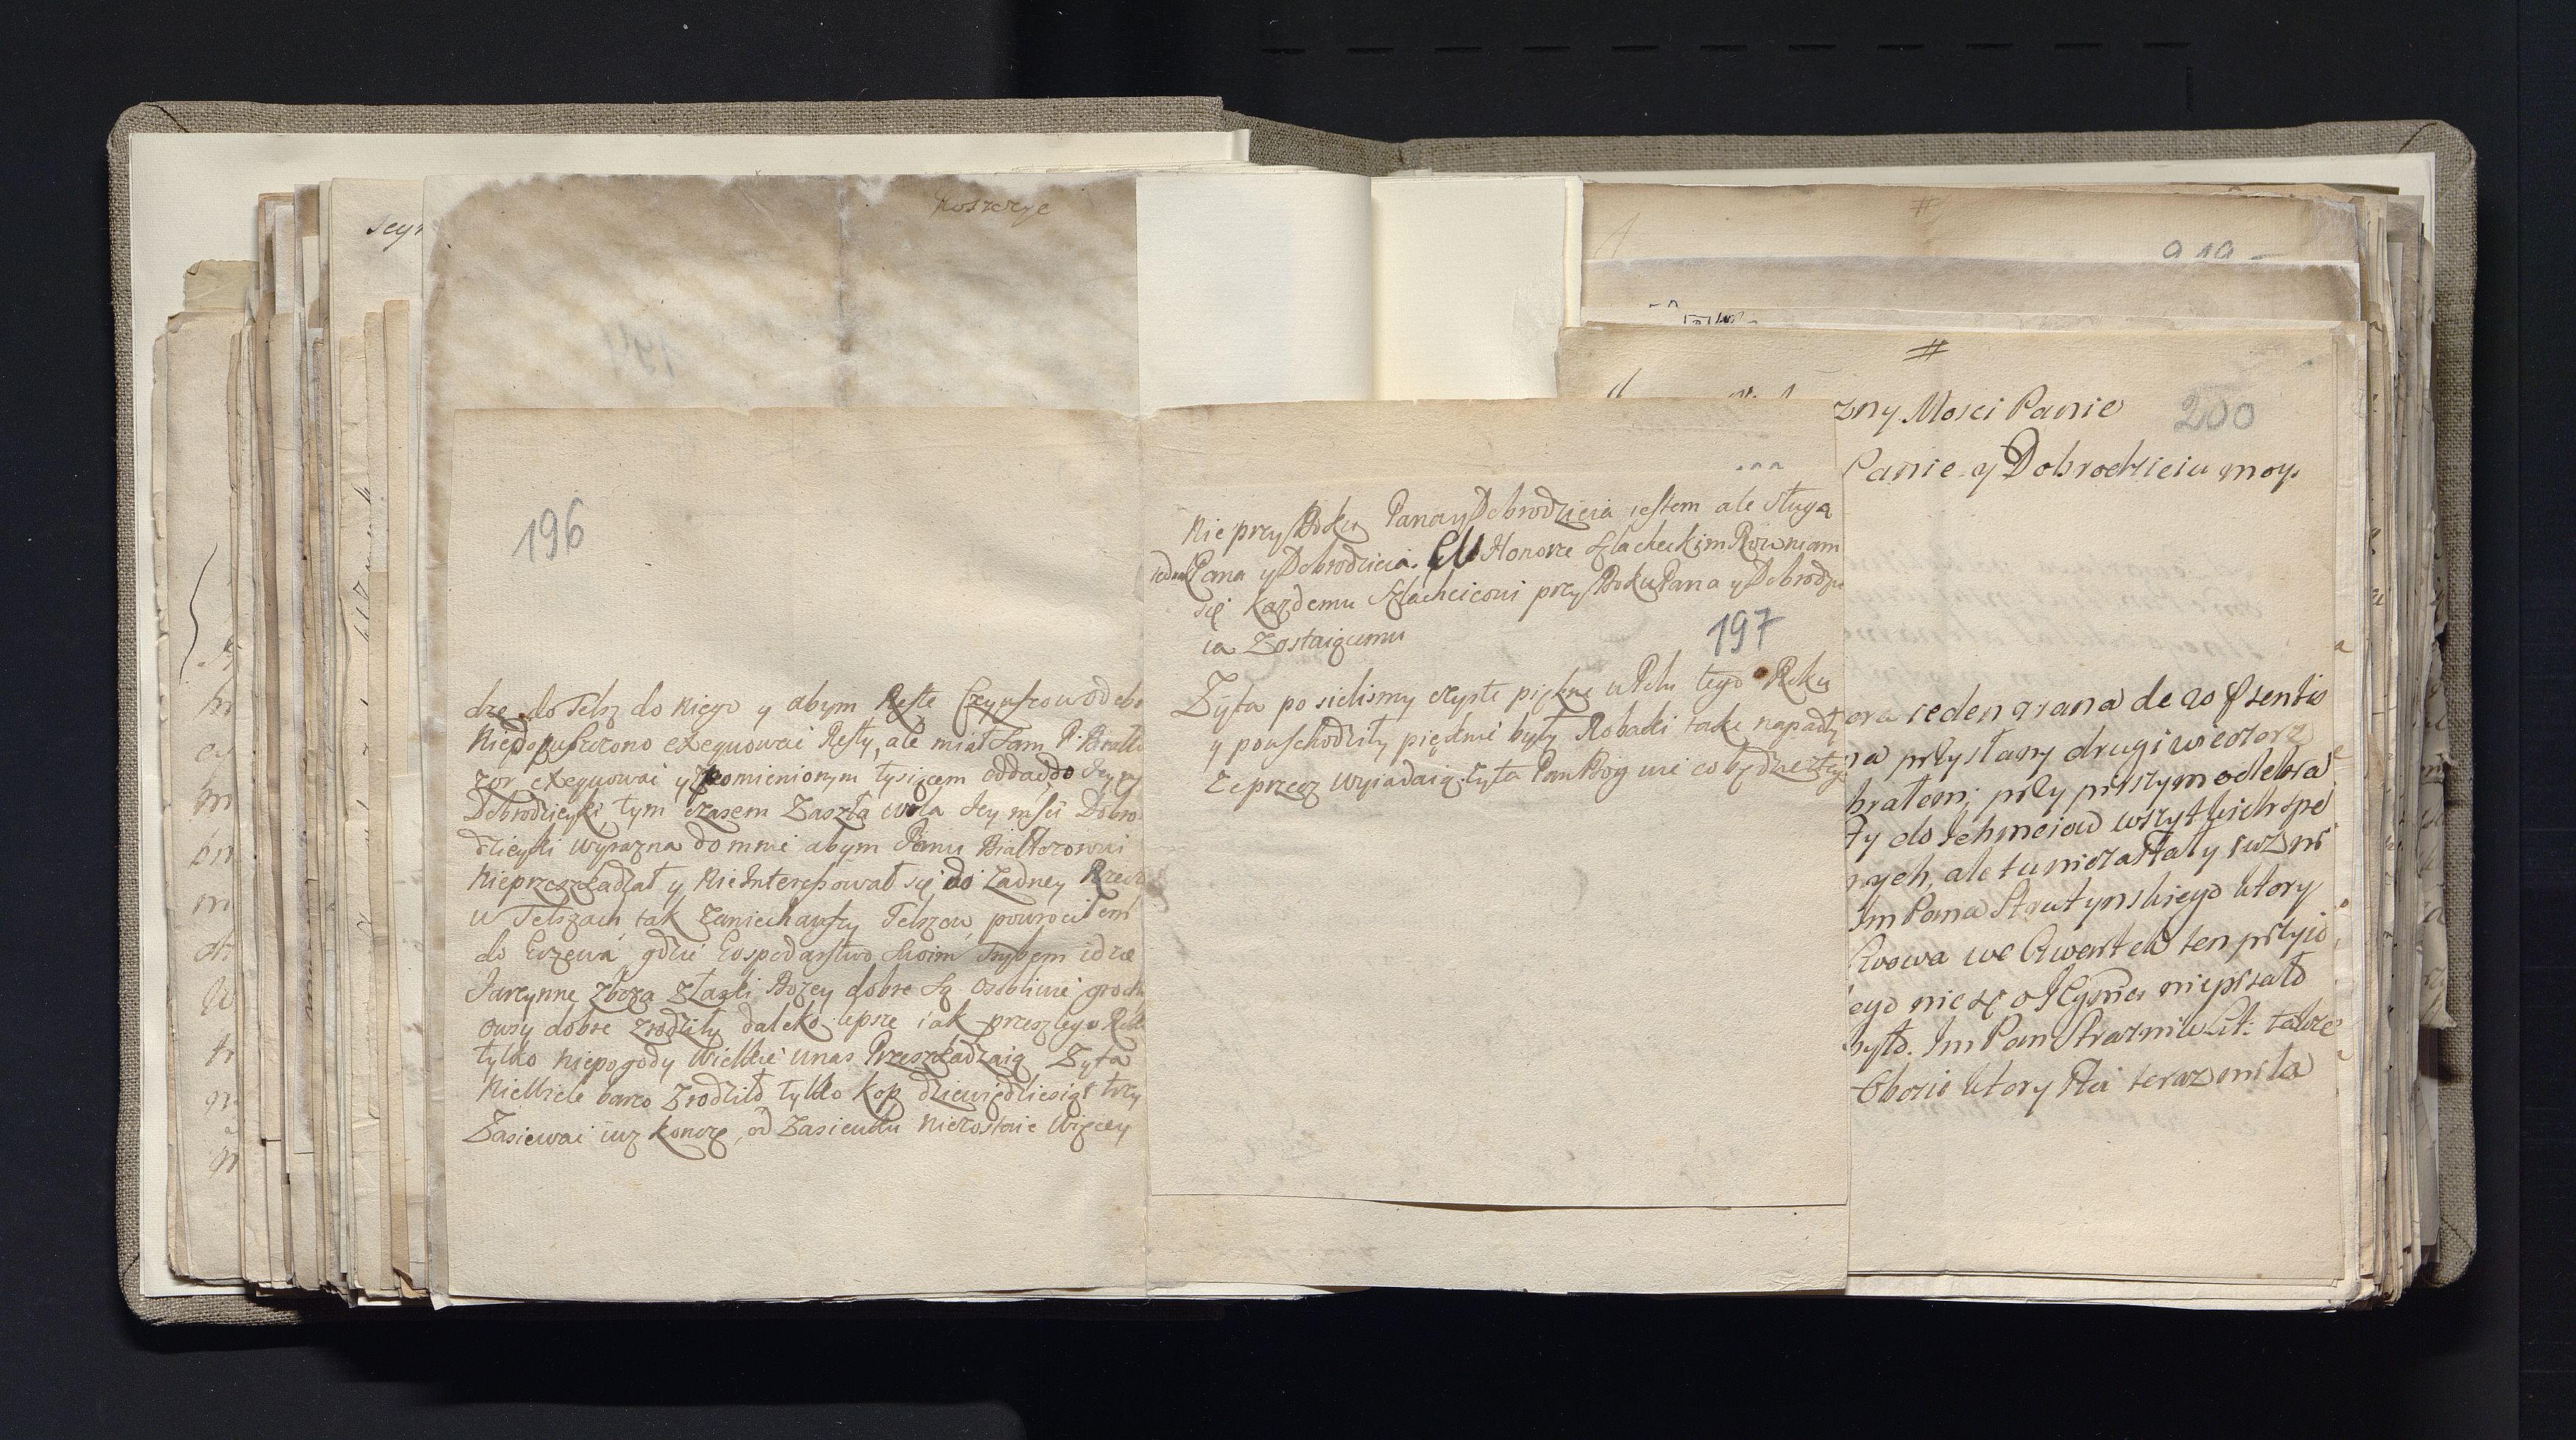 Koszerye
196
dze do Telsz do niego y abym Resztę Czynszow odebr
Niedopuszczono exequowac Reszty, ale miał sam P. Biało
zor exequować y z pomienionym tysiącem oddać do Jey mści
Dobrodzieyki, tym czasem zaszła wola Jey mści Dobro
dzieyki wyrazna do mnie abym Panu Białłozorowi
nieprzeszkadzał y nie Interessował się do zadney Rzeczy
w Telszach, tak zaniechawszy Telszow, powrociłem
do Erzewa, gdzie Gospodarstwo swoim Trybem idzie
Jarzynne zboza z łaski Bozey dobre są osobliwie groch
owsy dobre zrodziły daleko lepsze iak przeszłego Roku
tylko niepogody wielkie u nas Przeszkadzaią Zyta
niewiele barzo zrodziło tylko kop dziewięcdziesiąt trzy
Zasiewać iuz koncze, od zasiewku niezostaie więcey
Nie przy Boku Pana y Dobrodzieia iestem ale sługą
iednak Pana y Dobrodzieia. w Honorze Szlacheckim Rownam
się kazdemu Szlachcicowi przy Boku Pana y Dobrodzie
ia Zostaiącemu
197
Zyta posielismy czyste piękne w Polu tego Roku
y powschodziły pięknie były Robacki takie napadły
ze precz wyiadaią zyta Pan Bog wie co będzie z tego
#
200
zny Mosci Panie
Panie y Dobrodzieiu moy.
ora ieden grana de 20 Psentis
na przysłany drugi wieczorą
brałem; przy pirszym odebra
ty do Ichmciow wszytkich spe
nych, ale tu niezastały iuz ni
Im Pana Strutynskiego ktory
Lwowa we Czwartek ten przyio
ego nic
było. Im Pan Straznik Lit: takze
Obozie ktory